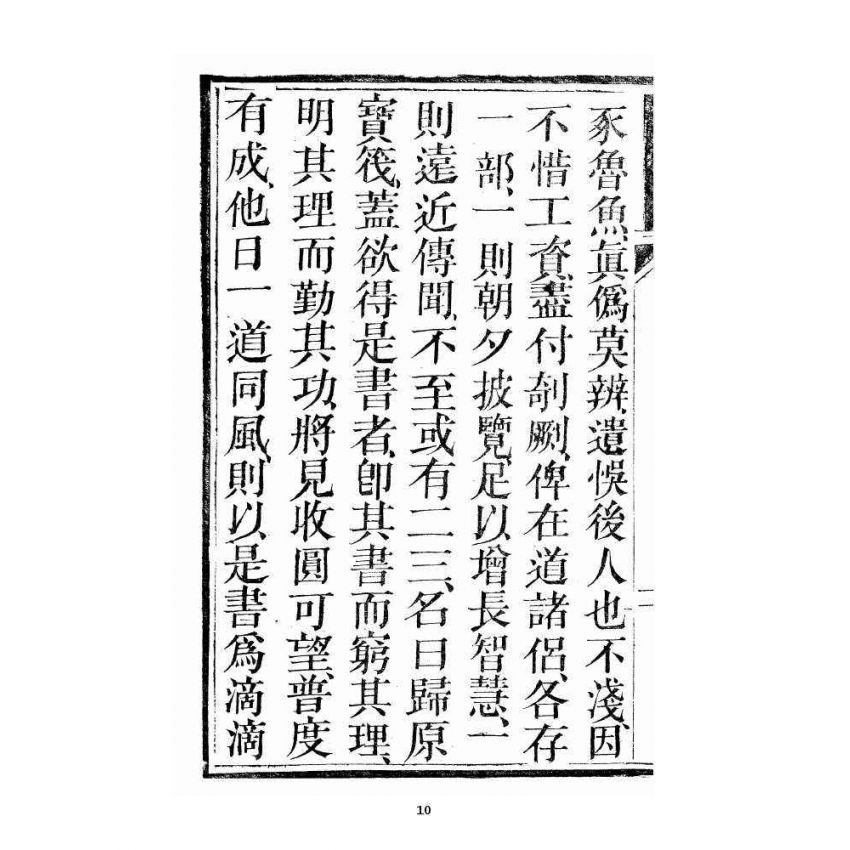 豕魯魚、眞僞莫辨、遺悞後人也不淺、因
不惜工資、盡付剞劂、俾在道諸侶、各存
一部、一則朝夕披覽、足以增長智慧、一
則遠近傳聞、不至或有二三、名曰歸原
寶筏、蓋欲得是書者、卽其書而窮其理、
明其理而勤其功、將見收圓可望、普度
有成、他日一道同風、則以是書爲滴滴
10